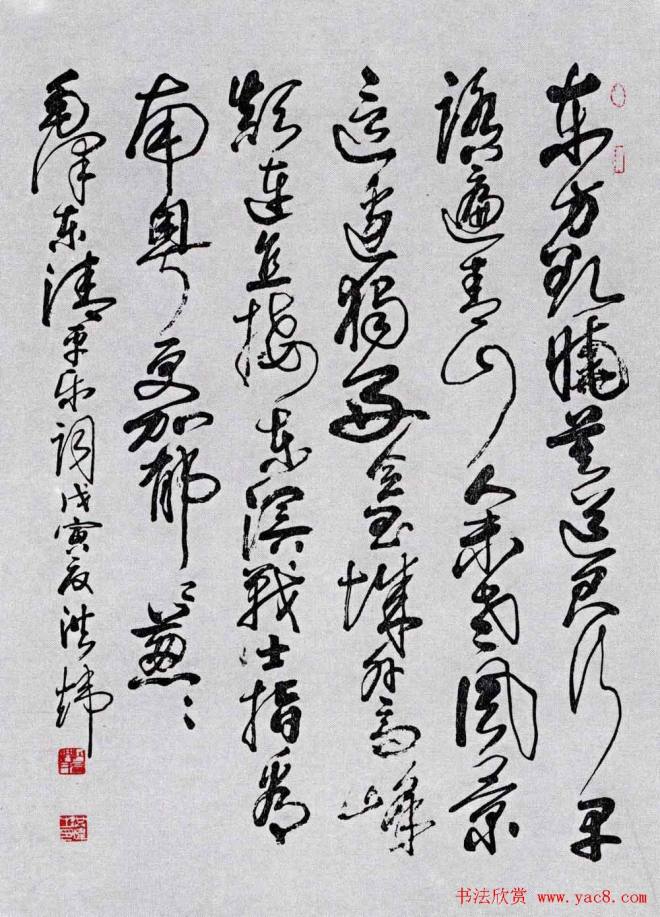 东方欲曉莫道君行早
踏遍青山人未老風景
這邊獨好会昌城外高峰
颠連直接东溟戰士指看
南粤更加郁〻葱〻
毛泽东清平乐词戊寅夏洪炜
书法欣赏 www.yac8.com